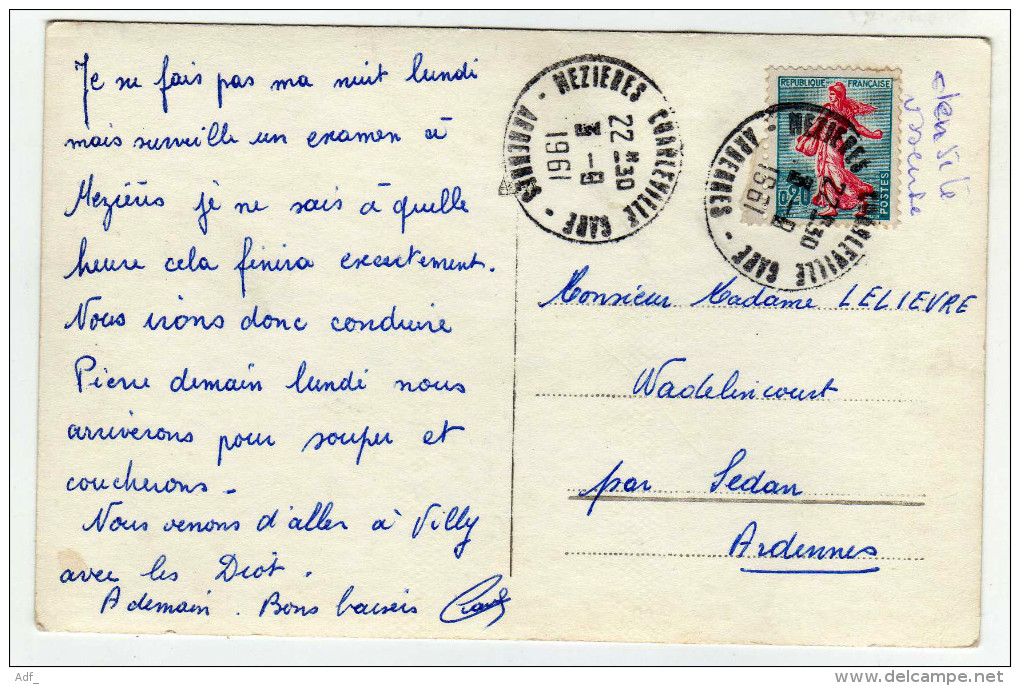 Je ne fais pas ma nuit lundi
mais surveille un examen à
Mezières je ne sais à quelle
heure cela finira exactement.
Nous irons donc conduire
Pierre demain lundi nous
arriverons pour souper et
coucherons -
Nous venons d'aller à Villy
avec les Diot.
A demain. Bons baisers
MEZIERES CHARLEVILLE GARE - ARDENNES -
22 H 30
-9
1961
REPUBLIQUE FRANÇAISE
0,20
POSTES
MEZIERES CHARLEVILLE GARE - ARDENNES -
22 H 30
-9
1961
Monsieur Madame LELIEVRE
Wadelincourt
par Sedan
Ardennes
Adf_
delcampe.net